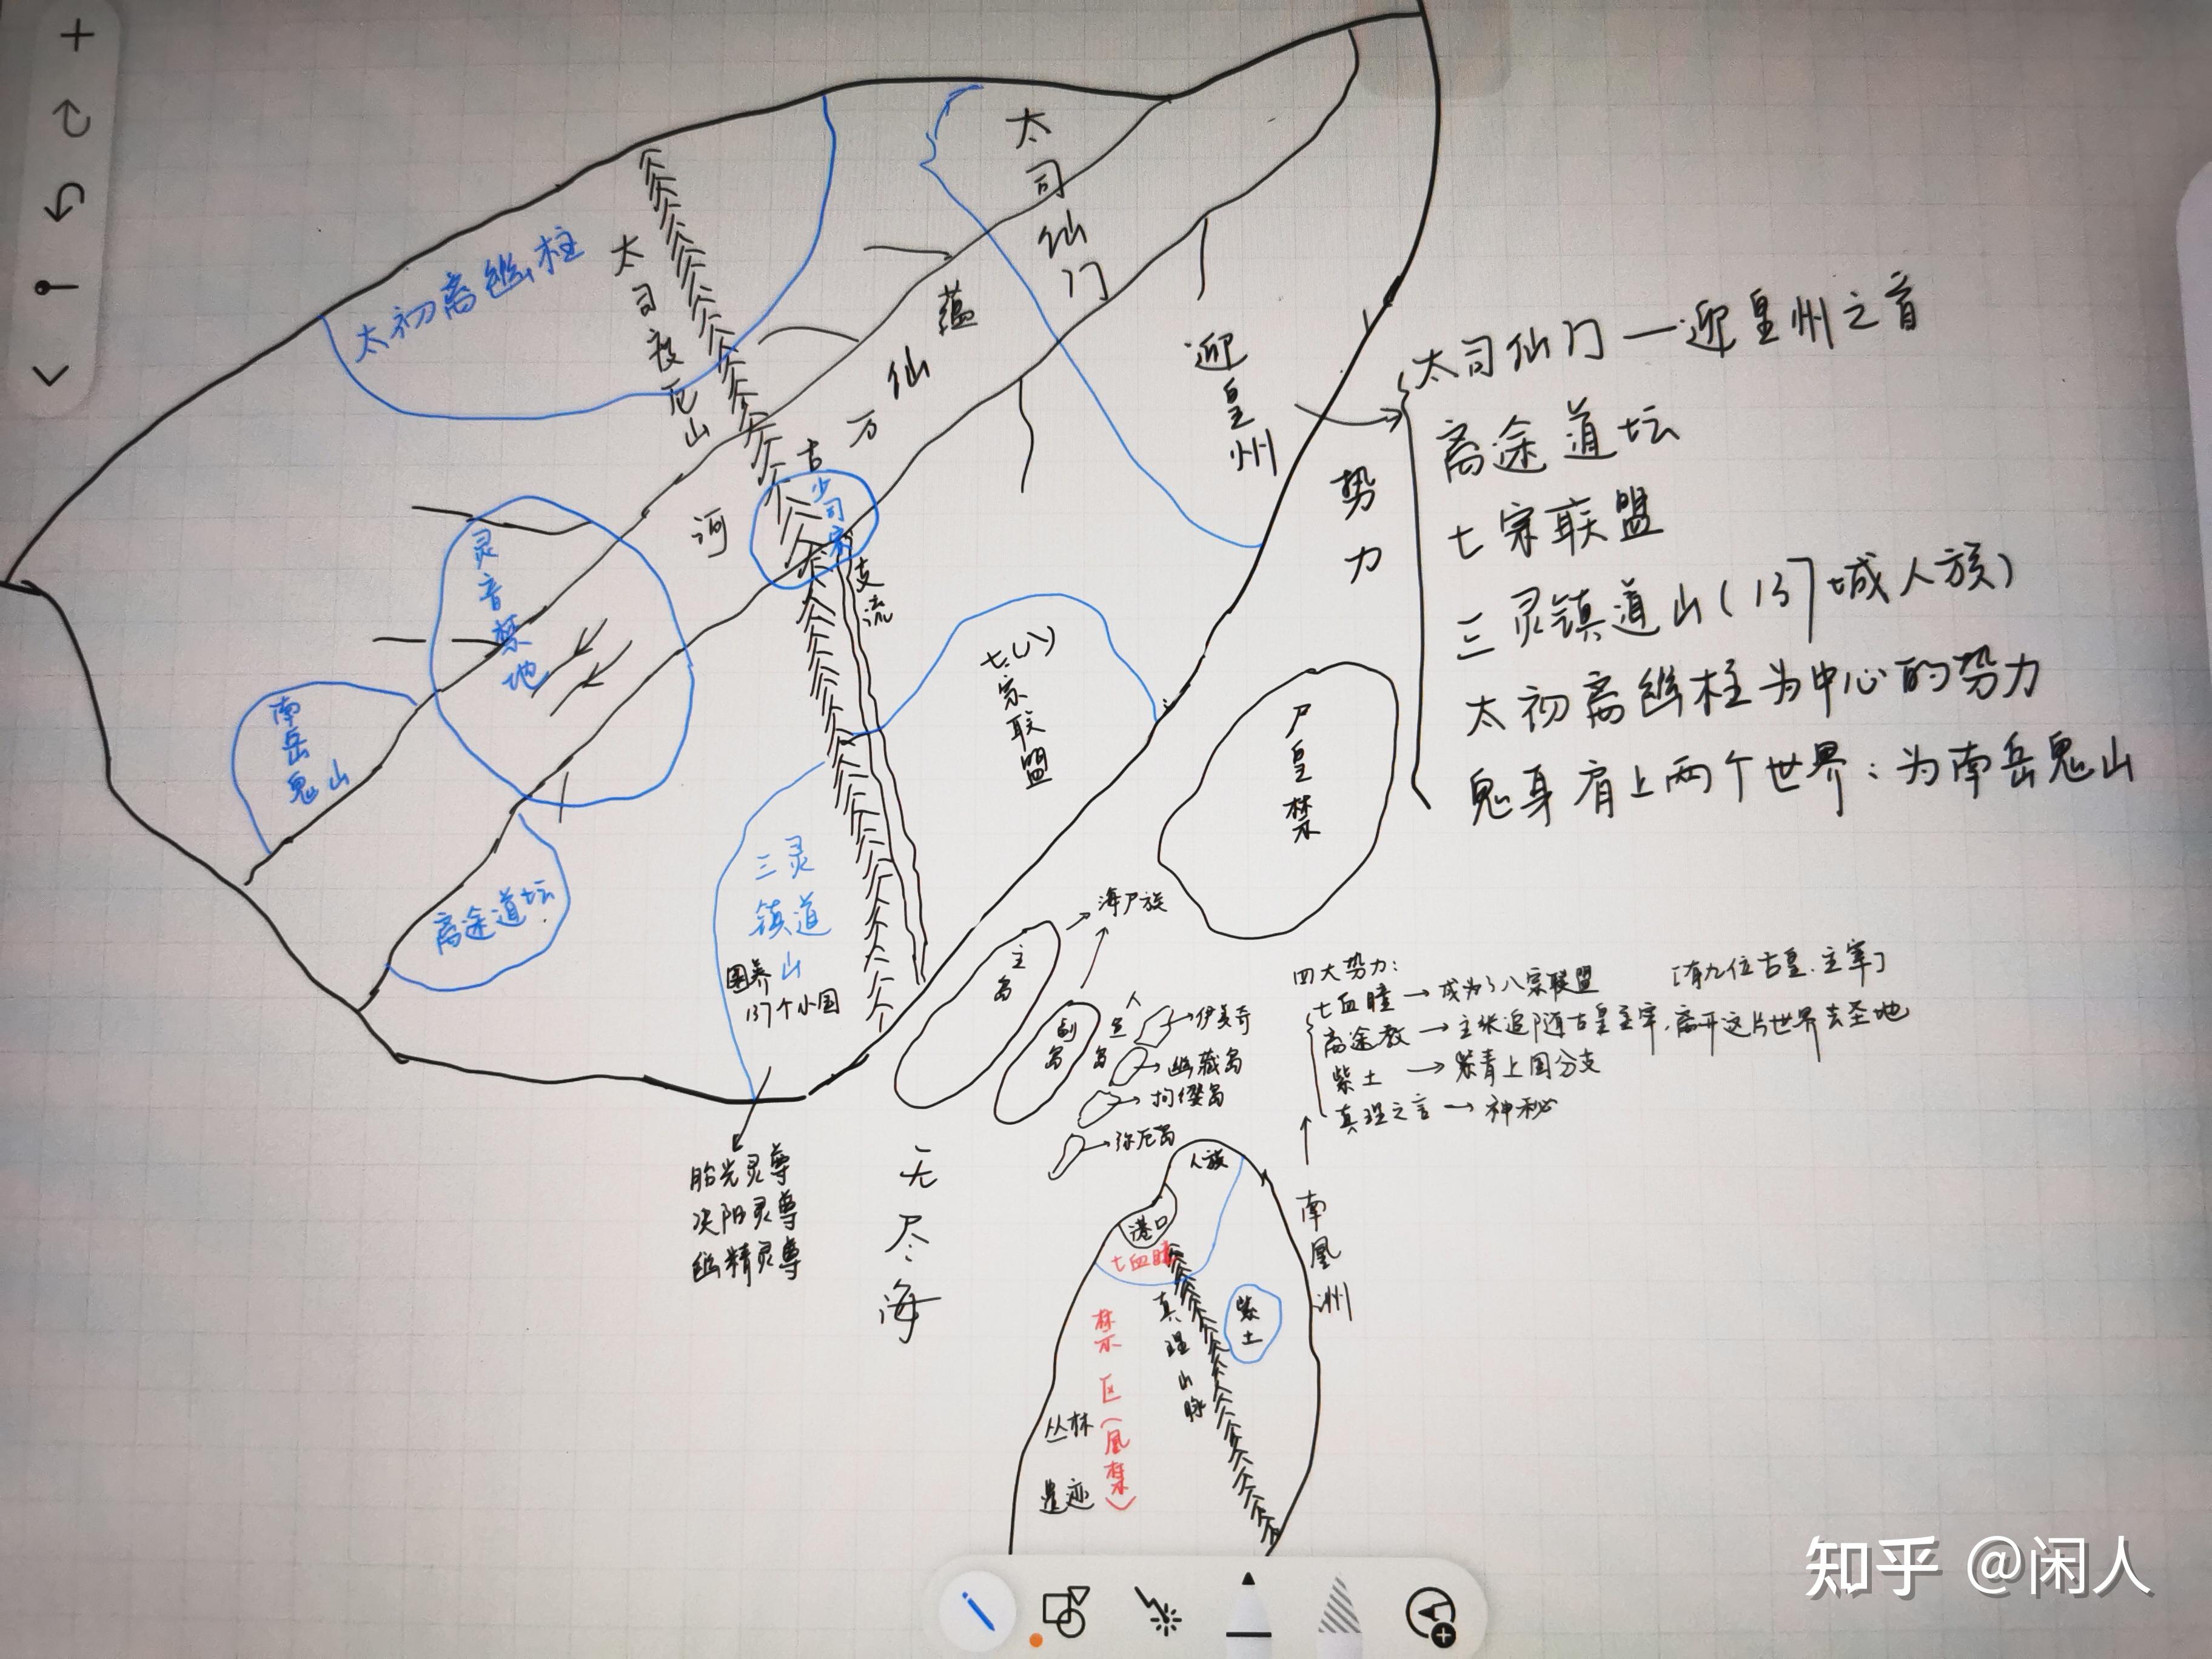 太初离幽柱
太司度厄山
太司仙门
蕴仙万古河
迎皇州
少司宗
支流
灵音禁地
南岳鬼山
离途道坛
七(八)宗联盟
三灵镇道山
圈养
137个小国
胎光灵尊
爽阳灵尊
幽精灵尊
势力
太司仙门—迎皇州之首
离途道坛
七宗联盟
三灵镇道山(137城人族)
太初离幽柱为中心的势力
鬼身肩上两个世界:为南岳鬼山
尸皇禁
海尸族
主岛
副岛
人鱼岛
伊美奇
幽藏岛
拘缨岛
弥厄岛
无尽海
四大势力:
[有九位古皇.主宰]
七血瞳→成为了八宗联盟
离途教→主张追随古皇主宰,离开这片世界去圣地
紫土→紫青上国分支
真理之言→神秘
南凰洲
人族
港口
七血瞳
真理山脉
紫土
禁区(凰禁)
丛林
遗迹
知乎 @闲人